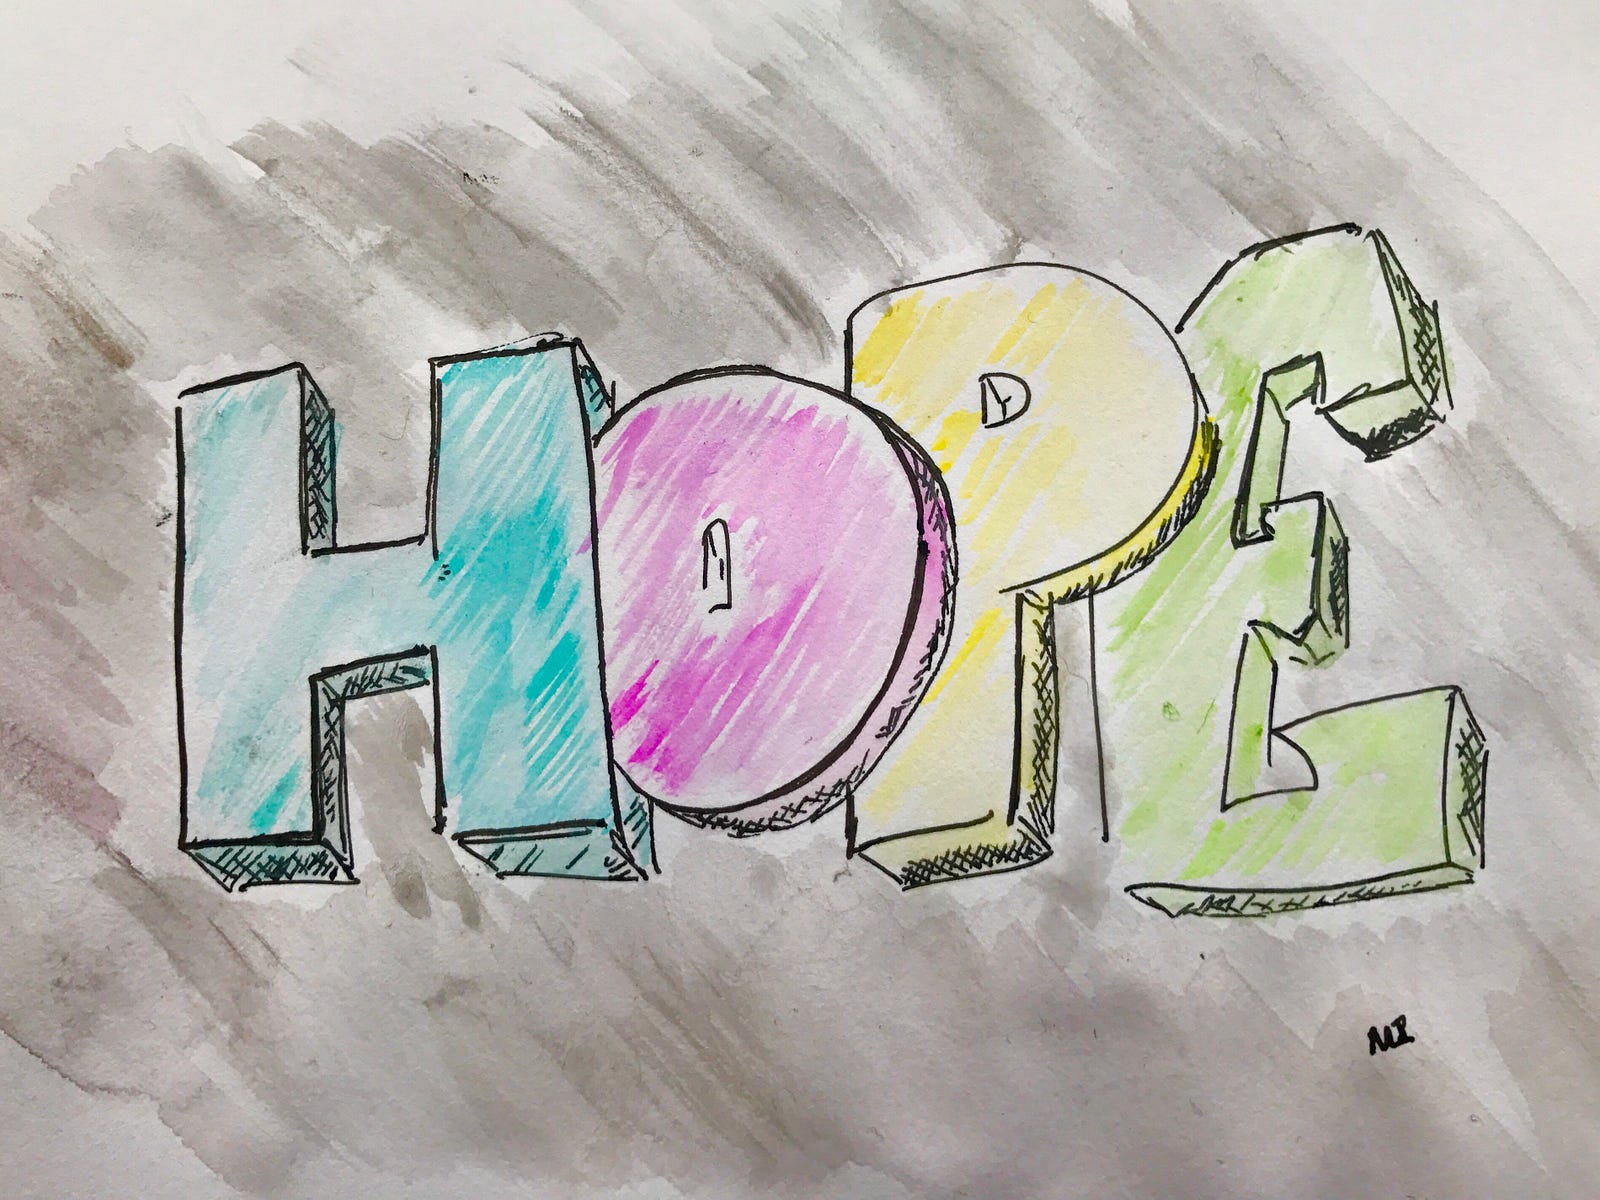 HOPE
MP